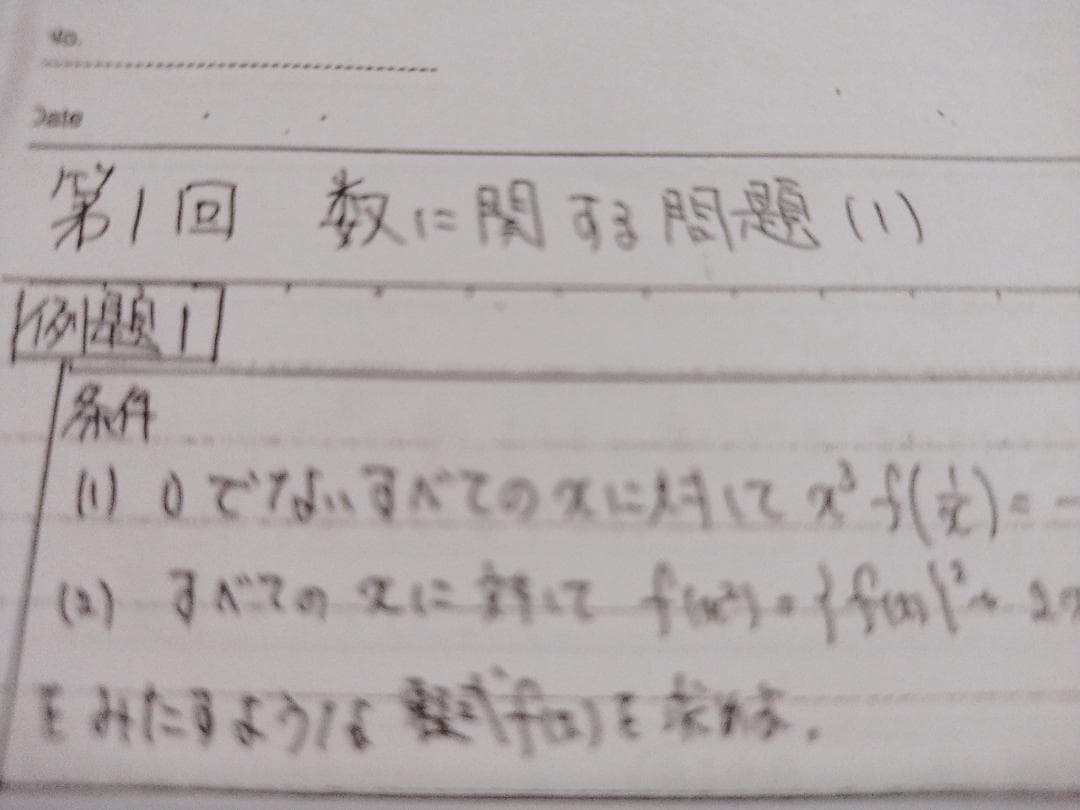 No.
Date
第1回 数に関する問題(1)
例題1
条件
(1) 0でないすべてのxに対して x³f(1/x)=-
(2) すべてのxに対して f(x²)={f(x)}²+2x
をみたすような整式f(x)を求めよ.